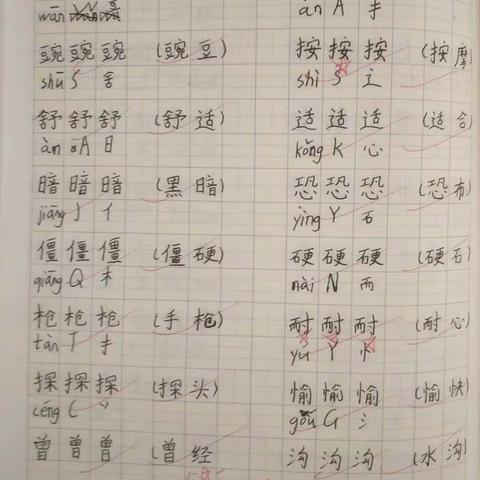 wān àn A 扌
豌豌豌 (豌豆) 按按按 (按摩)
shū S 舍 shì S 辶
舒舒舒 (舒适) 适适适 (适合)
àn A 日 kǒng K 心
暗暗暗 (黑暗) 恐恐恐 (恐怖)
jiāng J 亻 yìng Y 石
僵僵僵 (僵硬) 硬硬硬 (硬石)
qiāng Q 木 nài N 而
枪枪枪 (手枪) 耐耐耐 (耐心)
tàn T 扌 yú Y 忄
探探探 (探头) 愉愉愉 (愉快)
céng C 丷 gōu G 氵
曾曾曾 (曾经 沟沟沟 (水沟)